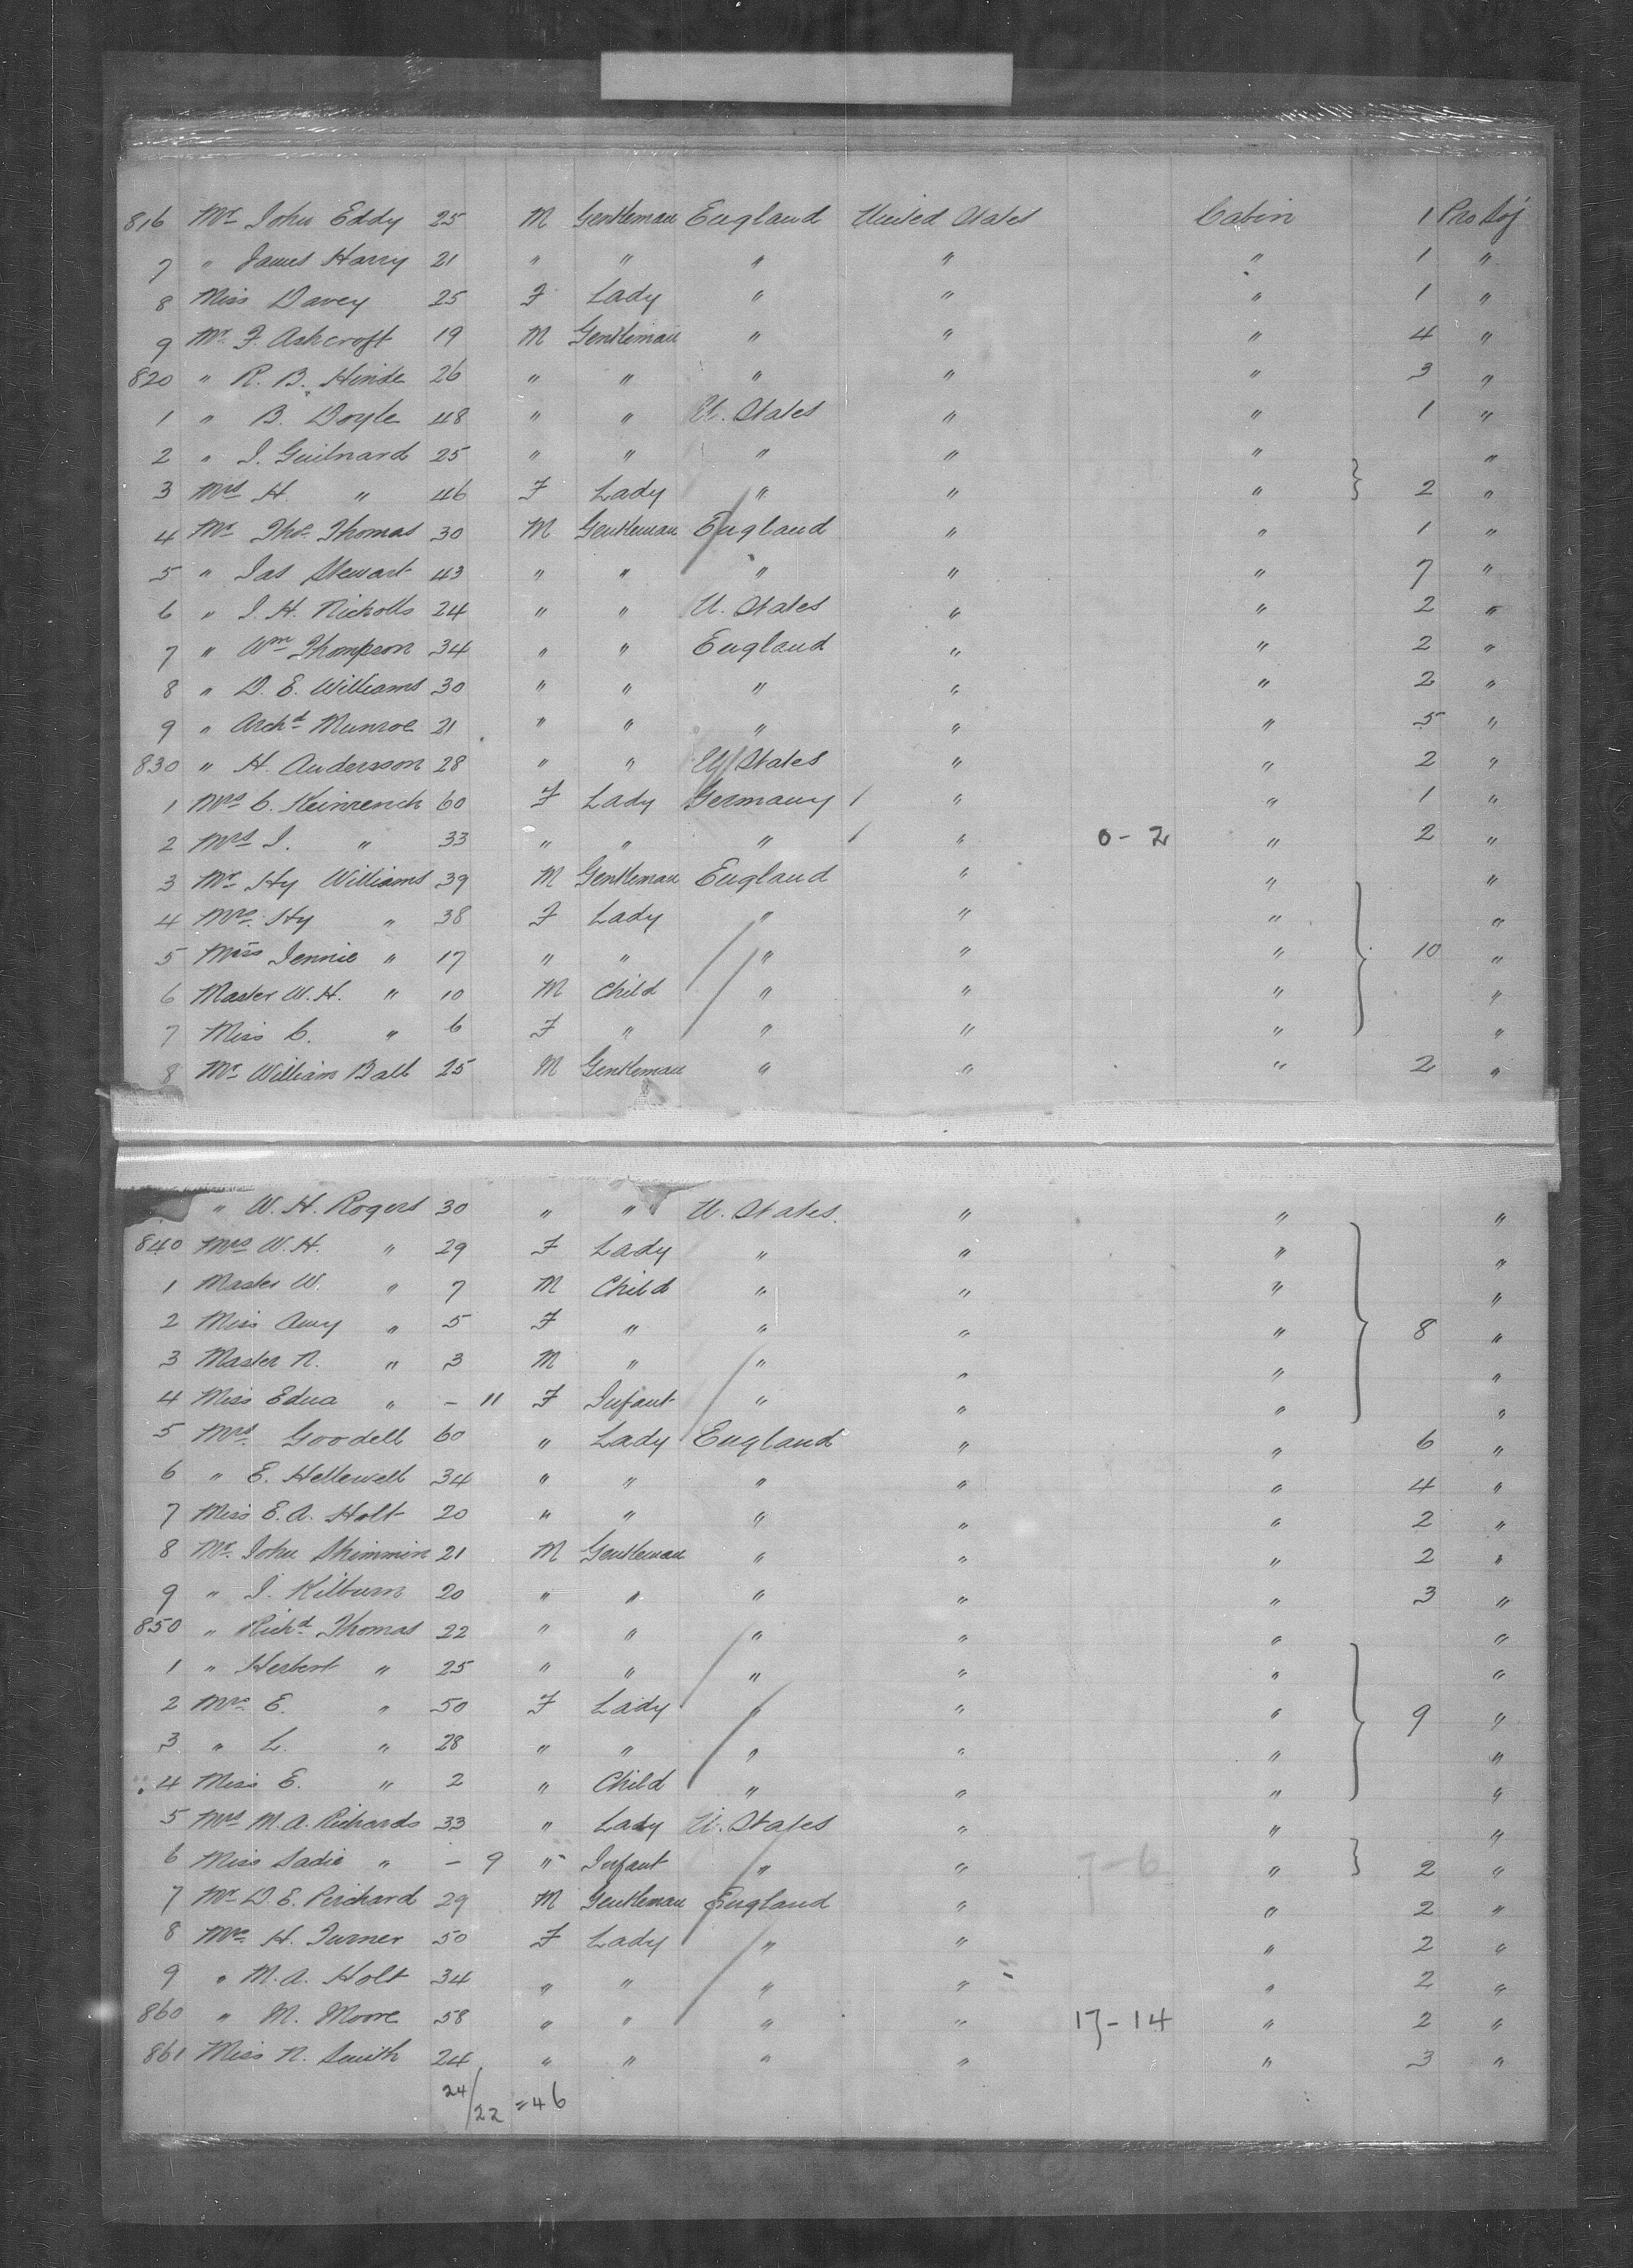 816 Mr John Eddy 25 M Gentleman England United States Cabin 1 Pro Soj
7 " James Harry 21 " " " " " 1 "
8 Miss Davey 25 F Lady " " " 1 "
9 Mr F. Ashcroft 19 M Gentleman " " " 4 "
820 " R. B. Hinde 26 " " " " " 3 "
1 " B. Doyle 48 " " U. States " " 1 "
2 " J. Guilnard 25 " " " " " "
3 Mrs H. " 46 F Lady " " " } 2 "
4 Mr Thos Thomas 30 M Gentleman England " " 1 "
5 " Jas Stewart 43 " " " " " 7 "
6 " J. H. Nicholls 24 " " U. States " " 2 "
7 " Wm Thompson 34 " " England " " 2 "
8 " D. E. Williams 30 " " " " " 2 "
9 " Archd Munroe 21 " " " " " 5 "
830 " H. Andersson 28 " " U States " " 2 "
1 Mrs C. 60 F Lady Germany 1 " " 1 "
2 Mrs J. " 33 " " " 1 " 0-2 " 2 "
3 Mr Hy Williams 39 M Gentleman England " " "
4 Mrs Hy " 38 F Lady " " " "
5 Miss Jennie " 17 " " " " " } 10 "
6 Master W. H. " 10 M Child " " " "
7 Miss C. " 6 F " " " " "
8 Mr William Ball 25 M Gentleman " " " 2 "
" W. H. Rogers 30 " " U. States. " " "
840 Mrs W. H. " 29 F Lady " " " "
1 Master W. " 7 M Child " " " "
2 Miss Amy " 5 F " " " " } 8 "
3 Master N. " 3 M " " " " "
4 Miss Edna " - 11 F Infant " " " "
5 Mrs Goodell 60 " Lady England " " 6 "
6 " E. Hellewell 34 " " " " " 4 "
7 Miss E. A. Holt 20 " " " " " 2 "
8 Mr. John Skimmin 21 M Gentleman " " " 2 "
9 " J. Kilburn 20 " " " " " 3 "
850 " Richd Thomas 22 " " " " " "
1 " Herbert " 25 " " " " " "
2 Mrs E. " 50 F Lady " " " } 9 "
3 " L. " 28 " " " " " "
4 Miss E. " 2 " Child " " " "
5 Mrs M. A. Richards 33 " Lady U. States " " "
6 Miss Sadie " - 9 " Infant " " 7-6 " } 2 "
7 Mr D. E. Pirchard 29 M Gentleman England " " 2 "
8 Mrs H. Turner 50 F Lady " " " 2 "
9 " M. A. Holt 34 " " " " " 2 "
860 " M. Moore 58 " " " " 17-14 " 2 "
861 Miss N. Smith 24 " " " " " 3 "
24/22 =46